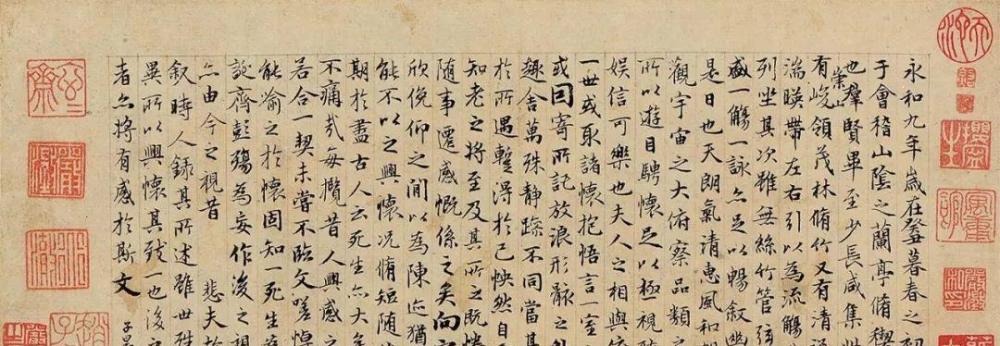 永和九年歲在癸丑暮春之初
于會稽山陰之蘭亭脩禊
也羣賢畢至少長咸集
崇山
有峻領茂林脩竹又有清
湍暎帶左右引以為流觴
列坐其次雖無絲竹管弦
盛一觴一詠亦足以暢敘
是日也天朗氣清惠風和
觀宇宙之大俯察品類之
所以遊目騁懷足以極視
娛信可樂也夫人之相與
一世或取諸懷抱悟言一室
或因寄所託放浪形骸之
趣舍萬殊靜躁不同當其
於所遇暫得於己怏然自
知老之將至及其所之既惓
隨事遷感慨係之矣向之
欣俛仰之閒以為陳迹猶
能不以之興懷況脩短隨
期於盡古人云死生亦大
不痛哉每攬昔人興感
若合一契未嘗不臨文嗟悼
能喻之於懷固知一死生
誕齊彭殤為妄作後之視
亦由今之視昔悲夫故
叙時人録其所述雖世殊
異所以興懷其致一也後之
者亦將有感於斯文
子